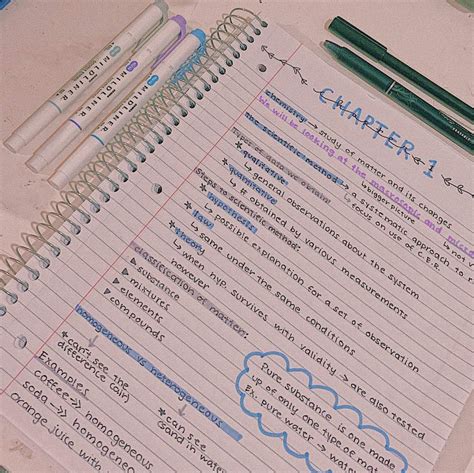 MILDLINER
MILDLINER
MILDLINER
CHAPTER 1
chemistry → study of matter and its changes
We will be looking at the macroscopic and micro
↳ bigger picture ↳ not
The scientific method → a systematic approach to r
↳ focus on use of C.E.R.
Types of data we obtain:
★ qualitative
↳ general observations about the system
★ quantitative
↳ obtained by various measurements
Steps to scientific method:
★ hypothesis
↳ possible explanation for a set of observation
★ law
↳ same under the same conditions
★ theory
↳ when hyp. survives with validity → are also tested
however
classification of matter:
▲ substance
▲ mixtures
▲ elements
▲ compounds
homogeneous vs heterogeneous
★ can't see the
difference (air)
★ can see
(sand in water
Examples
coffee → homogeneous
soda → homogeneous
orange juice with
Pure substance is one made
up of only one type of
Ex. pure water → water